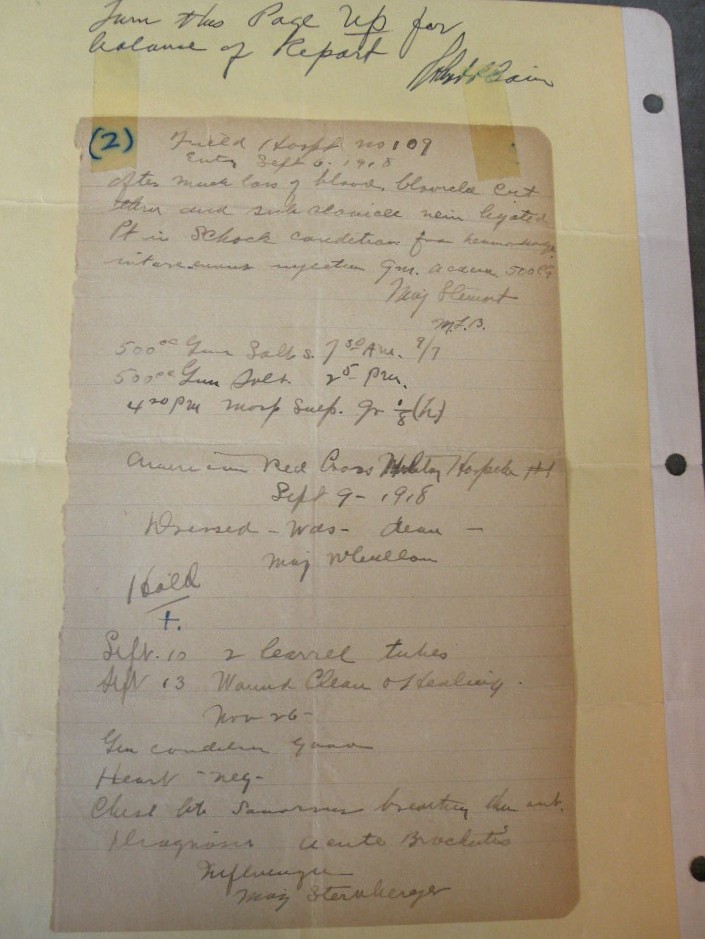 Turn this Page Up for
balance of Report
(2)
Field Hospt no 109
Entry Sept 6. 1918
After much loss of blood,
thru and subclavicle vein ligated
Pt in Schock condition from hemorrhage
injection Gm. 500
Maj Stewart
500cc Gum Salts. 7 30 Am. 9/7
500cc Gum Salt. 2 5 Pm.
4 20 Pm Morp Sulp. Gr 1/8 (h)
American Red Cross Military Hospital #1
Sept 9 - 1918
Dressed - was - clean -
Maj
Hold
+.
Sept. 10 2 tubes
Sept 13 Wound Clean & Healing.
Nov 26 -
Gen condition good
Heart - neg -
Chest breathing ant.
Diagnosis acute Bronchitis
Influenza
Maj Sternberger